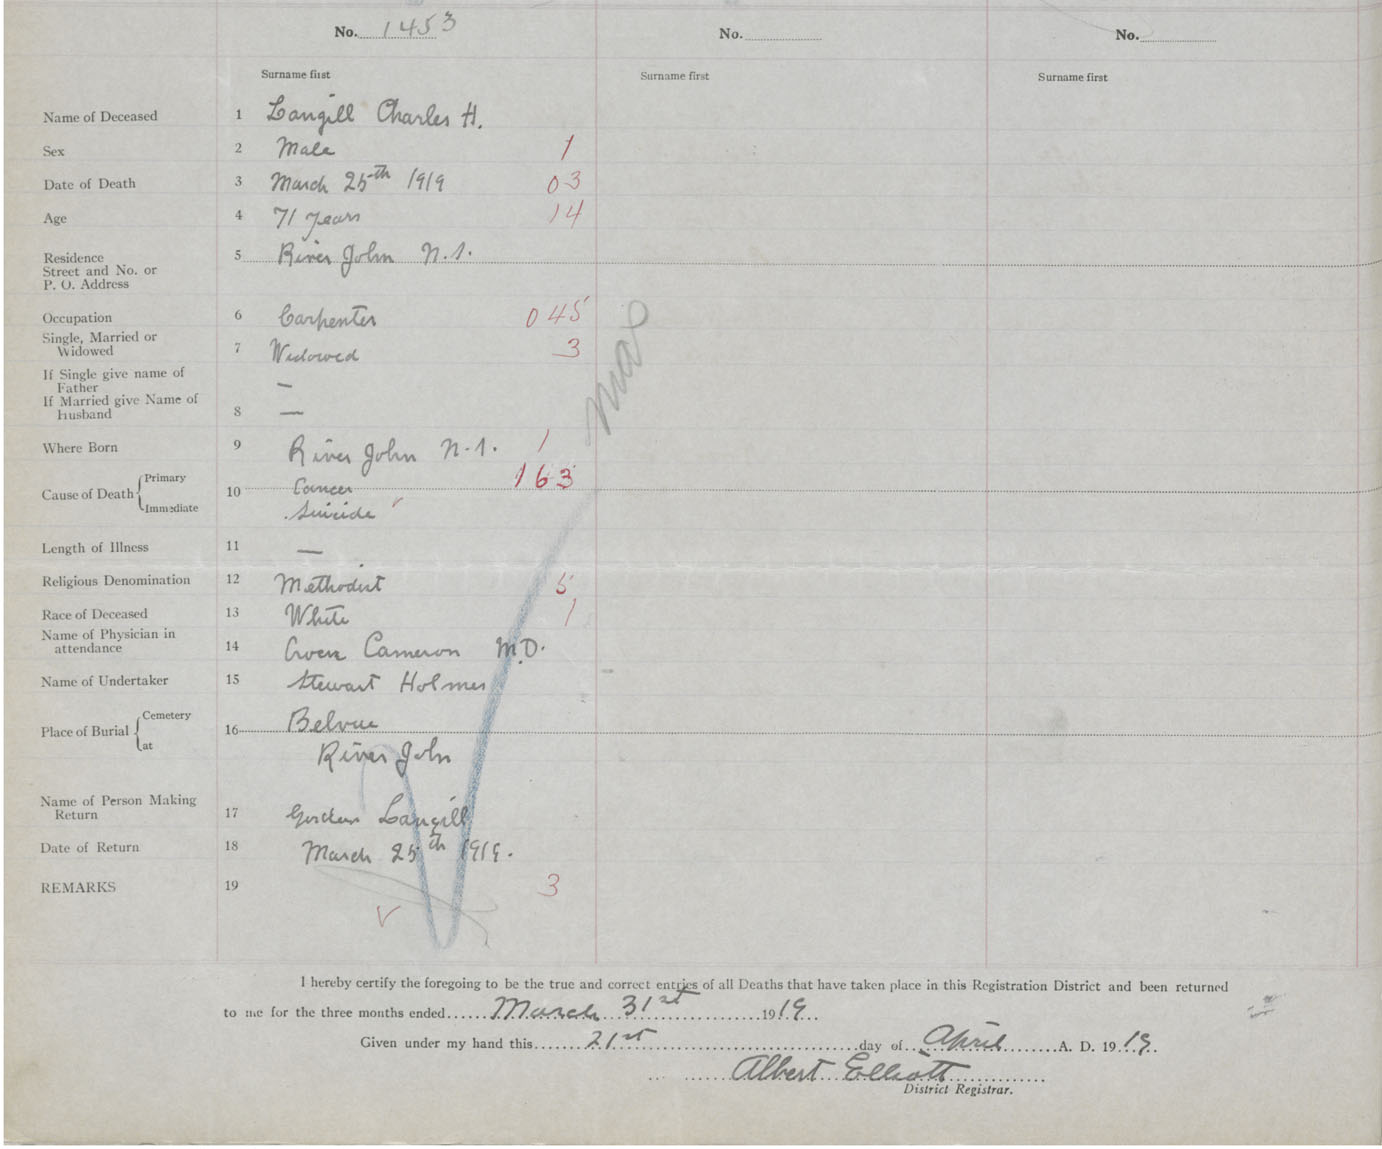 No. 1453 No. No.
Surname first Surname first Surname first
Name of Deceased 1 Langill Charles H.
Sex 2 Male 1
Date of Death 3 March 25th 1919 03
Age 4 71 years 14
Residence 5 River John N.S.
Street and No. or
P. O. Address
Occupation 6 Carpenter 045
Single, Married or
Widowed 7 Widowed 3
If Single give name of
Father —
If Married give Name of
Husband 8 —
Where Born 9 River John N.S. 1
163
Cause of Death Primary 10 Cancer
Immediate Suicide
Length of Illness 11 —
Religious Denomination 12 Methodist 5
Race of Deceased 13 White 1
Name of Physician in
attendance 14 Cameron M.D.
Name of Undertaker 15 Stewart Holmes
Place of Burial Cemetery 16 Belvue
at River John
Name of Person Making
Return 17 Gordon Langill
Date of Return 18 March 25th 1919.
REMARKS 19 3
I hereby certify the foregoing to be the true and correct entries of all Deaths that have taken place in this Registration District and been returned
to me for the three months ended March 31st 1919
Given under my hand this 21st day of April A. D. 1919.
Albert Elliott
District Registrar.